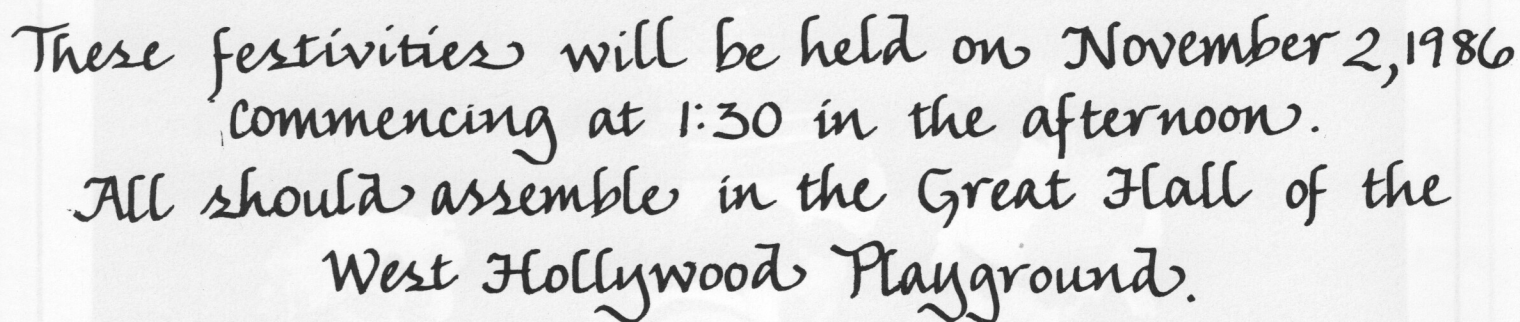 These festivities will be held on November 2, 1986
commencing at 1:30 in the afternoon.
All should assemble in the Great Hall of the
West Hollywood Playground.